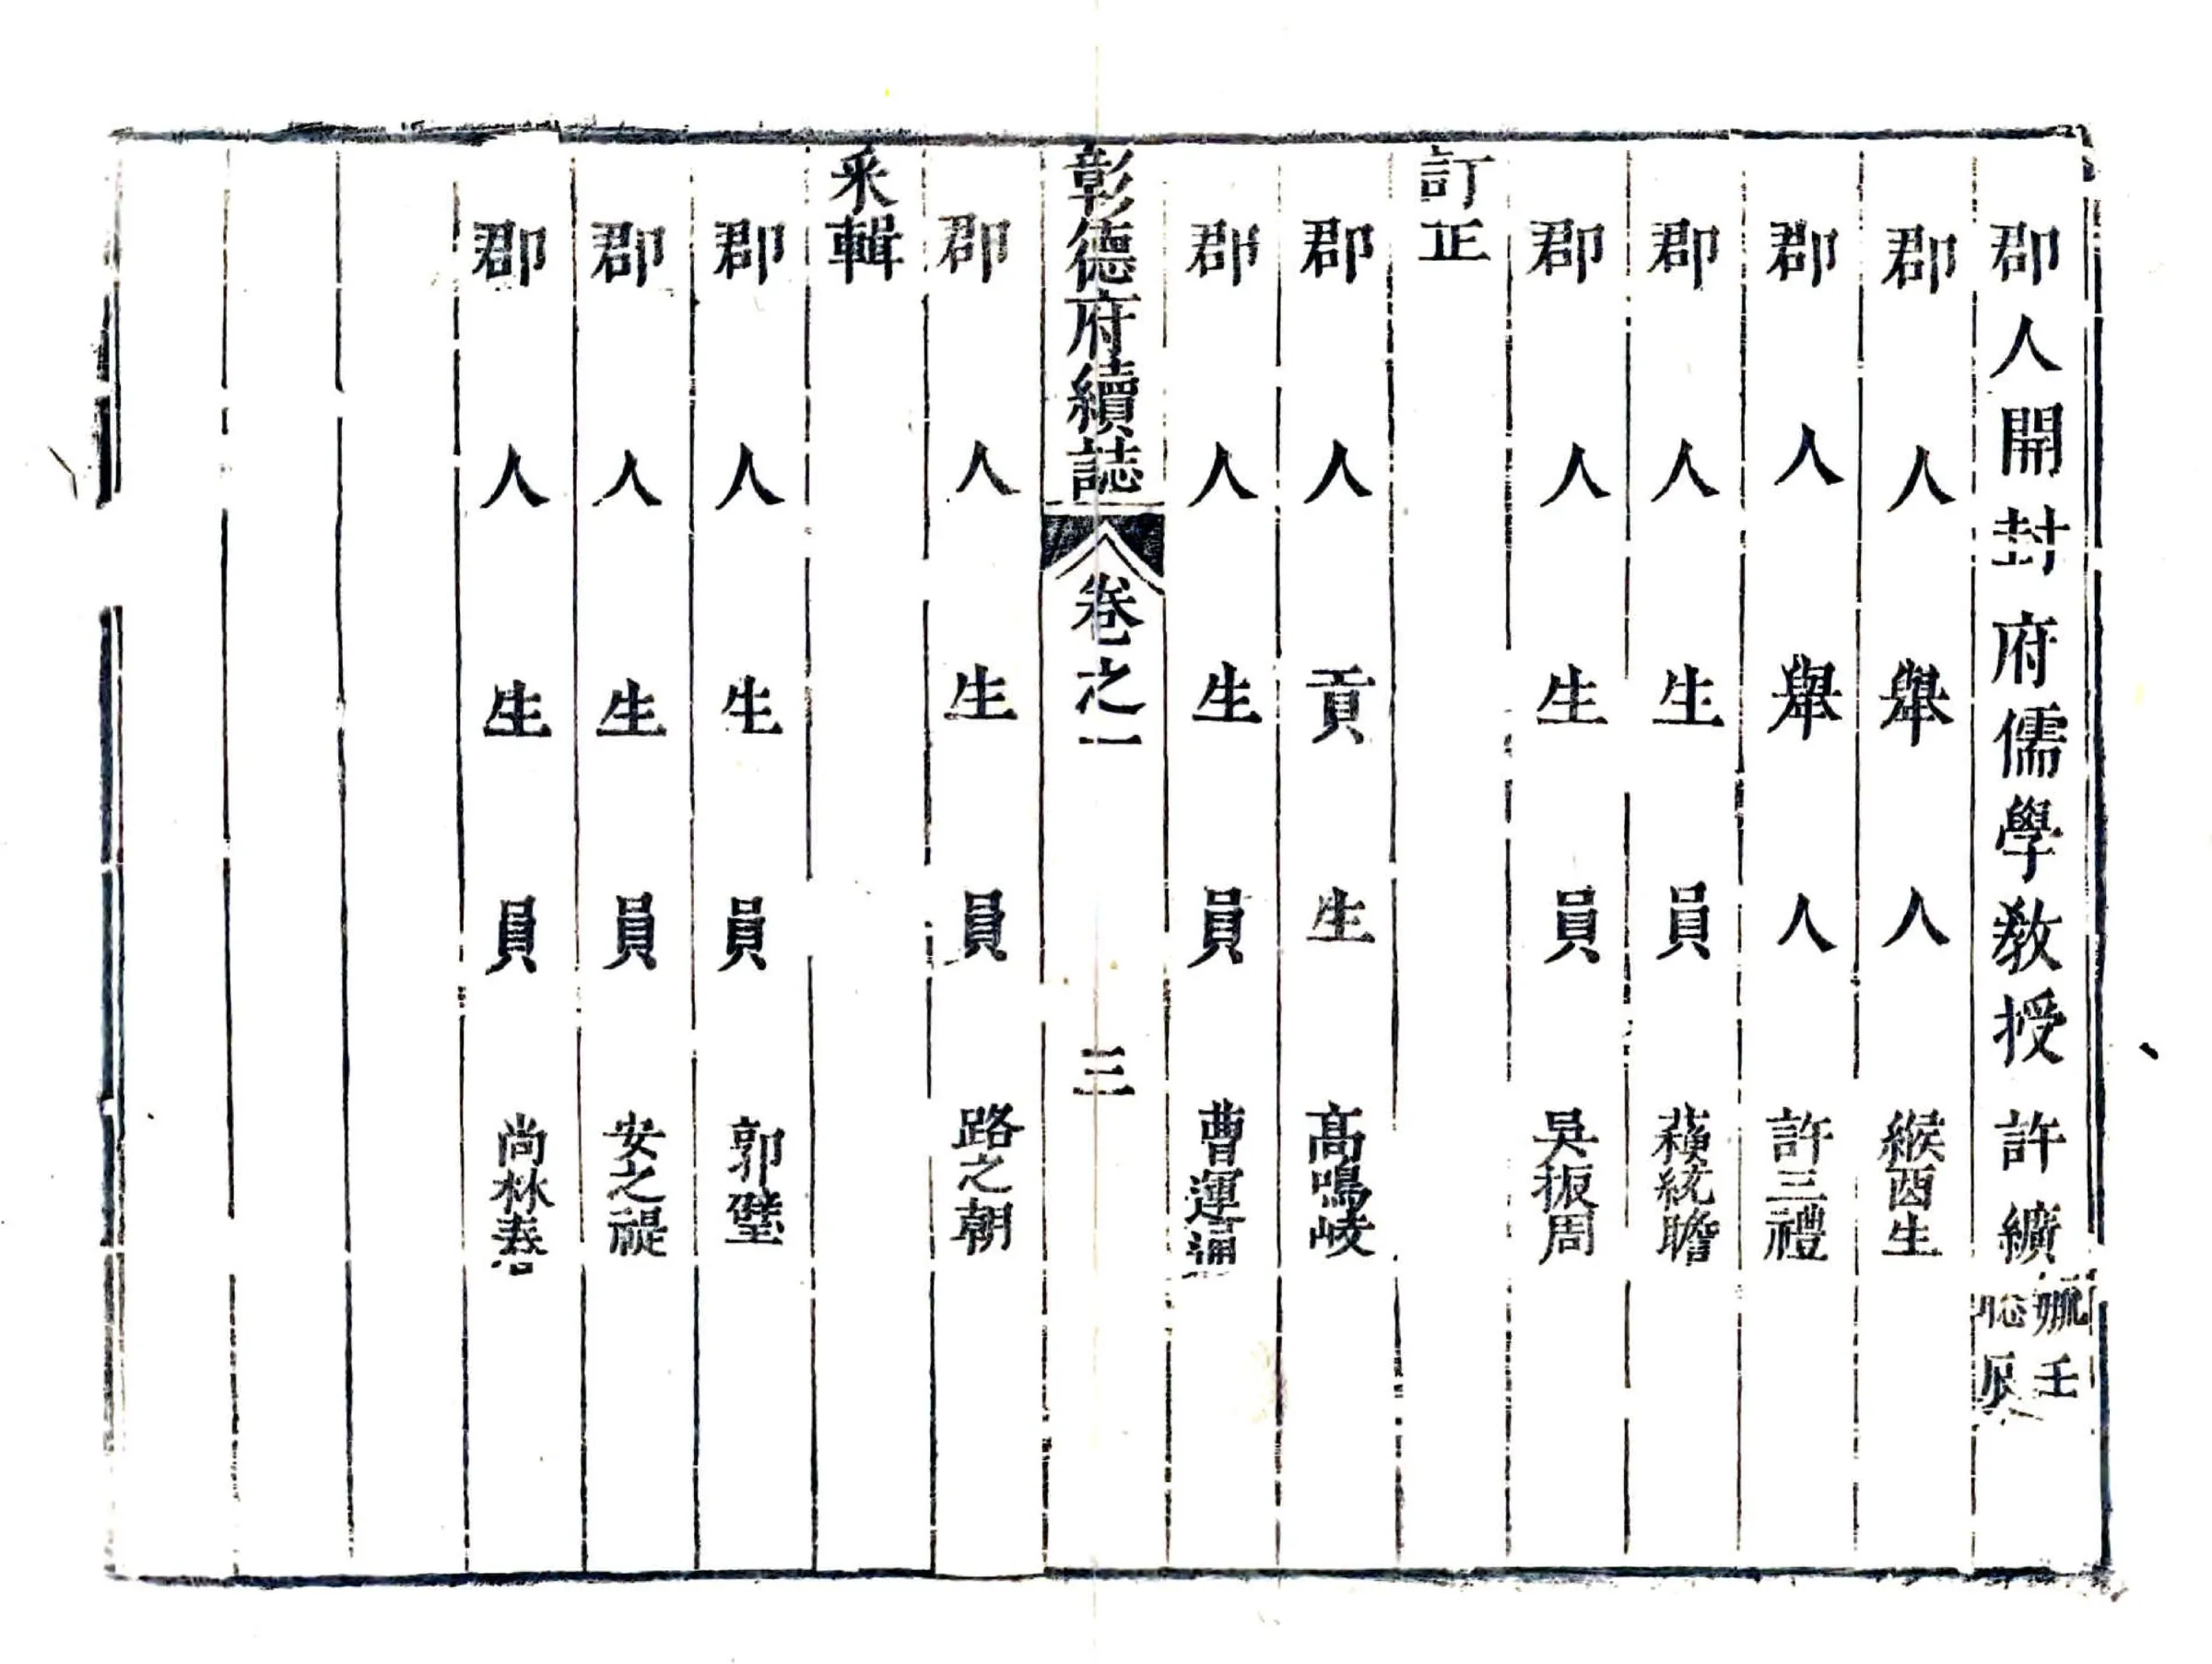 郡人開封府儒學教授許纊
壬
聡辰
郡人舉人緱酉生
郡人舉人許三禮
郡人生員統瞻
郡人生員吳振周
訂正
郡人貢生高鳴岐
郡人生員曹運
彰德府續誌 卷之一 三
郡人生員路之朝
采輯
郡人生員郭璧
郡人生員安之禔
郡人生員尚林春